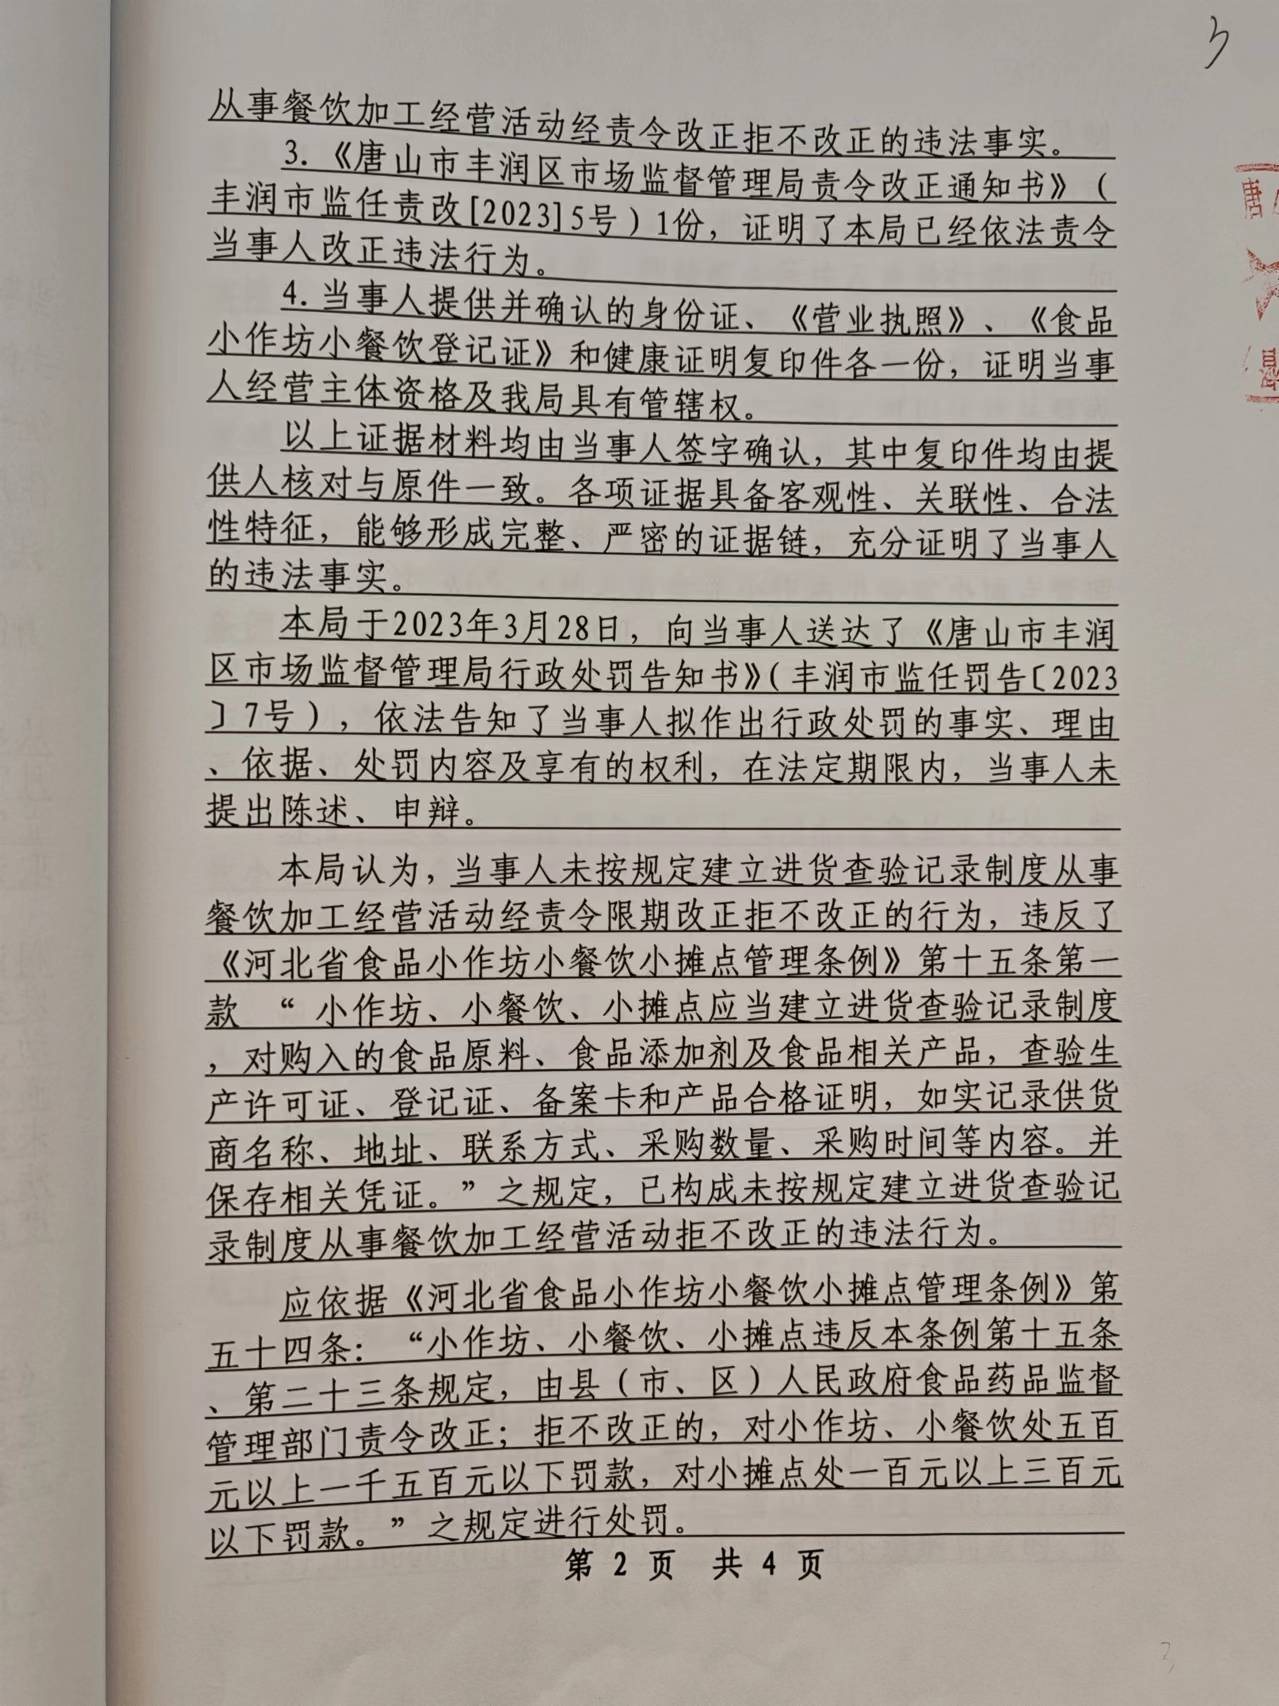 3
从事餐饮加工经营活动经责令改正拒不改正的违法事实。
3.《唐山市丰润区市场监督管理局责令改正通知书》（
丰润市监任责改[2023]5号）1份，证明了本局已经依法责令
当事人改正违法行为。
4.当事人提供并确认的身份证、《营业执照》、《食品
小作坊小餐饮登记证》和健康证明复印件各一份，证明当事
人经营主体资格及我局具有管辖权。
以上证据材料均由当事人签字确认，其中复印件均由提
供人核对与原件一致。各项证据具备客观性、关联性、合法
性特征，能够形成完整、严密的证据链，充分证明了当事人
的违法事实。
本局于2023年3月28日，向当事人送达了《唐山市丰润
区市场监督管理局行政处罚告知书》（丰润市监任罚告〔2023
〕7号），依法告知了当事人拟作出行政处罚的事实、理由
、依据、处罚内容及享有的权利，在法定期限内，当事人未
提出陈述、申辩。
本局认为，当事人未按规定建立进货查验记录制度从事
餐饮加工经营活动经责令限期改正拒不改正的行为，违反了
《河北省食品小作坊小餐饮小摊点管理条例》第十五条第一
款 “ 小作坊、小餐饮、小摊点应当建立进货查验记录制度
，对购入的食品原料、食品添加剂及食品相关产品，查验生
产许可证、登记证、备案卡和产品合格证明，如实记录供货
商名称、地址、联系方式、采购数量、采购时间等内容。并
保存相关凭证。”之规定，已构成未按规定建立进货查验记
录制度从事餐饮加工经营活动拒不改正的违法行为。
应依据《河北省食品小作坊小餐饮小摊点管理条例》第
五十四条：“小作坊、小餐饮、小摊点违反本条例第十五条
、第二十三条规定，由县（市、区）人民政府食品药品监督
管理部门责令改正；拒不改正的，对小作坊、小餐饮处五百
元以上一千五百元以下罚款，对小摊点处一百元以上三百元
以下罚款。”之规定进行处罚。
第 2 页 共 4 页
3
唐